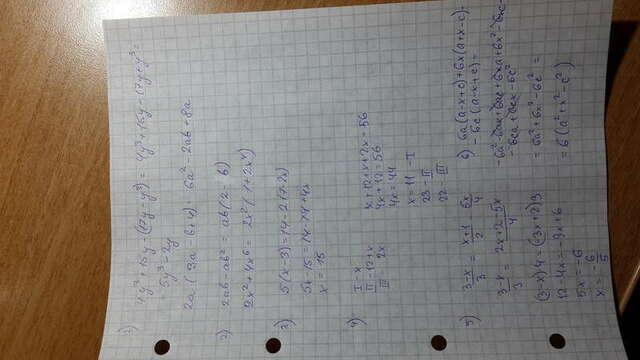 1) 4y³+15y-(17y-y³) = 4y³+15y-17y+y³=
= 5y³-2y
2a(3a-b+4) = 6a²-2ab+8a
2) 2ab-ab² = ab(2-b)
2x²+4x⁶ = 2x²(1+2x⁴)
3) 5(x-3)=14-2(7-2x)
5x-15=14-14+4x
x=15
4) I-x
II-12+x
III 2x
x+12+x+2x=56
4x+12=56
4x=44
x=11 - I
23 - II
22 - III
5) 3-x/3 = x+1/2 5x/4
3-x/3 = 2x+2-5x/4
(3-x)4=(-3x+2)3
12-4x=-9x+6
5x=-6
x=-6/5
6) 6a(a-x+c)+6x(a+x-c)-
-6c(a-x+c)=
=6a²-6ax+6ac+6xa+6x²-6xc-
-6ca+6cx-6c²
=6a²+6x²-6c² =
=6(a²+x²-c²)